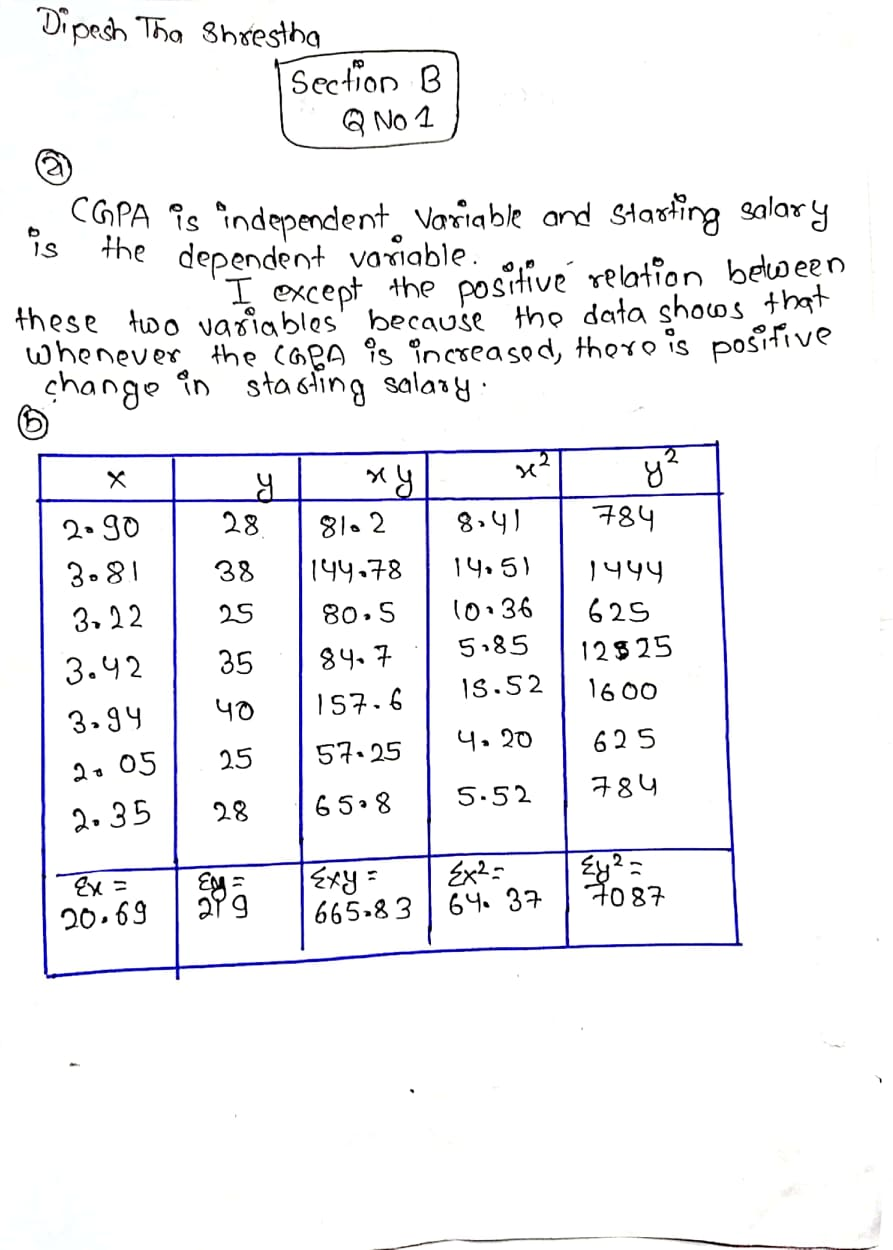 Dipesh Tha Shrestha
Section B
Q No 1
a
CGPA is independent variable and starting salary
is the dependent variable.
I except the positive relation between
these two variables because the data shows that
whenever the CGPA is increased, there is positive
change in starting salary.
b
x y xy x² y²
2.90 28 81.2 8.41 784
3.81 38 144.78 14.51 1444
3.22 25 80.5 10.36 625
3.42 35 84.7 5.85 1225
3.94 40 157.6 15.52 1600
2.05 25 57.25 4.20 625
2.35 28 65.8 5.52 784
Σx = Σy = Σxy = Σx² = Σy² =
20.69 219 665.83 64.37 7087